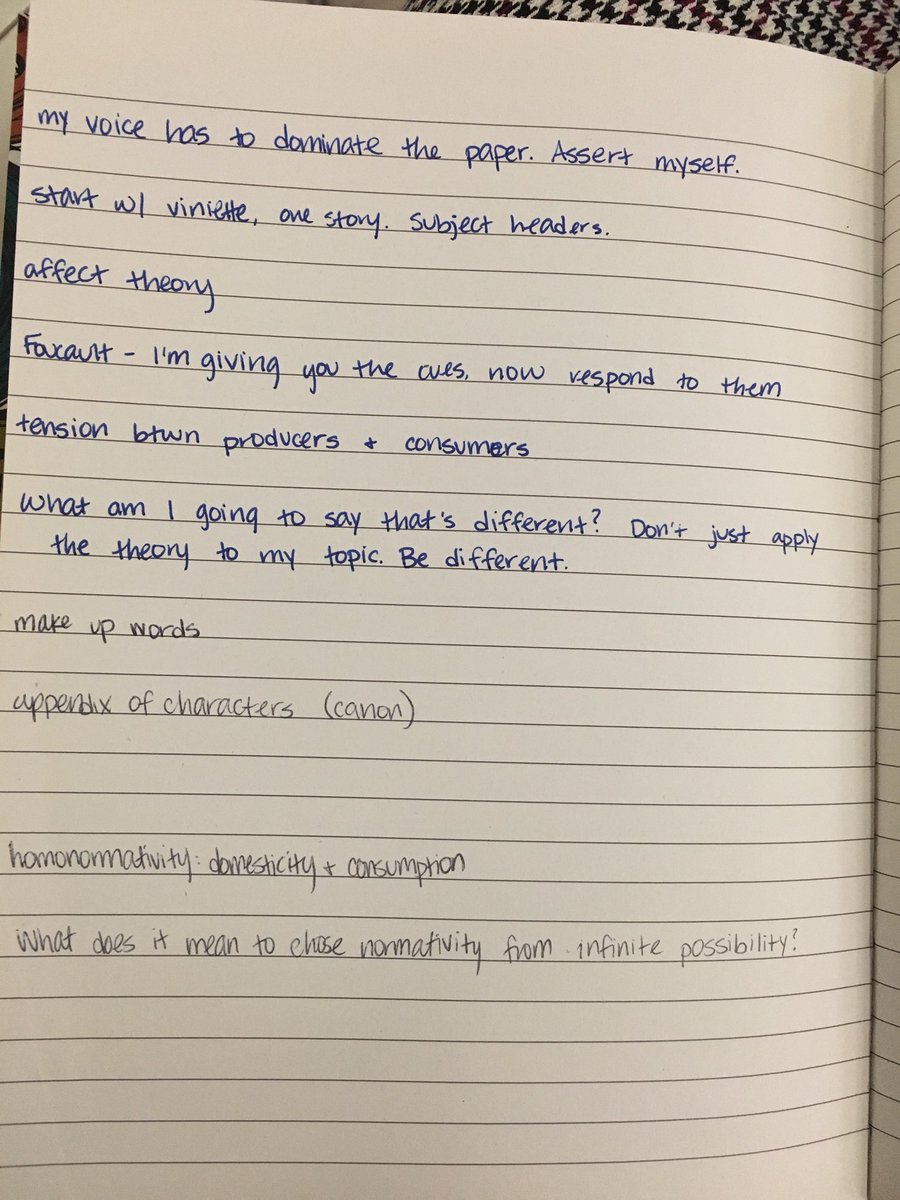 my voice has to dominate the paper. Assert myself.
start w/ viniette, one story. Subject headers.
affect theory
Foucault - I'm giving you the cues, now respond to them
tension btwn producers + consumers
What am I going to say that's different? Don't just apply
the theory to my topic. Be different.
make up words
appendix of characters (canon)
homonormativity: domesticity + consumption
What does it mean to chose normativity from infinite possibility?